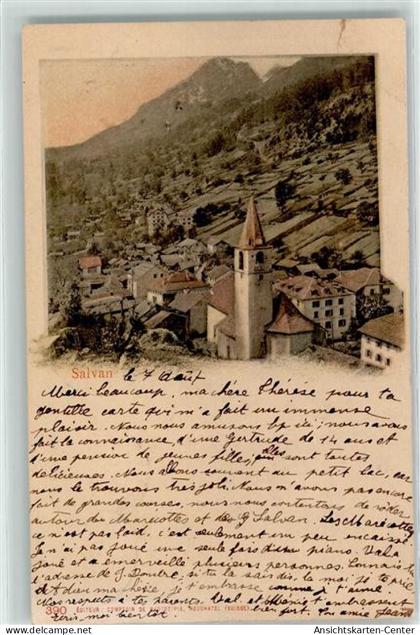 Salvan
le 7 Août
Merci beaucoup, ma chère Thérèse pour ta
gentille carte qui m'a fait un immense
plaisir. Nous nous amusons bp ici; nous avons
fait la connaissance d'une Gertrude de 14 ans et
d'une pension de jeunes filles, elles sont toutes
délicieuses. Nous allons souvent au petit lac, car
nous le trouvons très joli. Nous n'avons pas encore
fait de grandes courses, nous nous contentons de rôder
autour des Marécottes et de Salvan. Les Marécottes
ce n'est pas fait, c'est seulement un peu encaissé.
Je n'ai pas joué une seule fois du piano. Vala
joué et a émerveillé plusieurs personnes. Connais-tu
l'adresse de J. si tu la sais dis la moi je te prie
Adieu ma chérie, je t'embrasse comme je t'aime
Nos respects à tes parents. Val et t'embrassent
390 EDITEUR: COMPTOIR DE PHOTOTYPIE, NEUCHATEL (SUISSE) bien fort. Ta amie
Ecris moi bientôt
© Ansichtskarten-Center
www.Ansichtskarten-Center.de